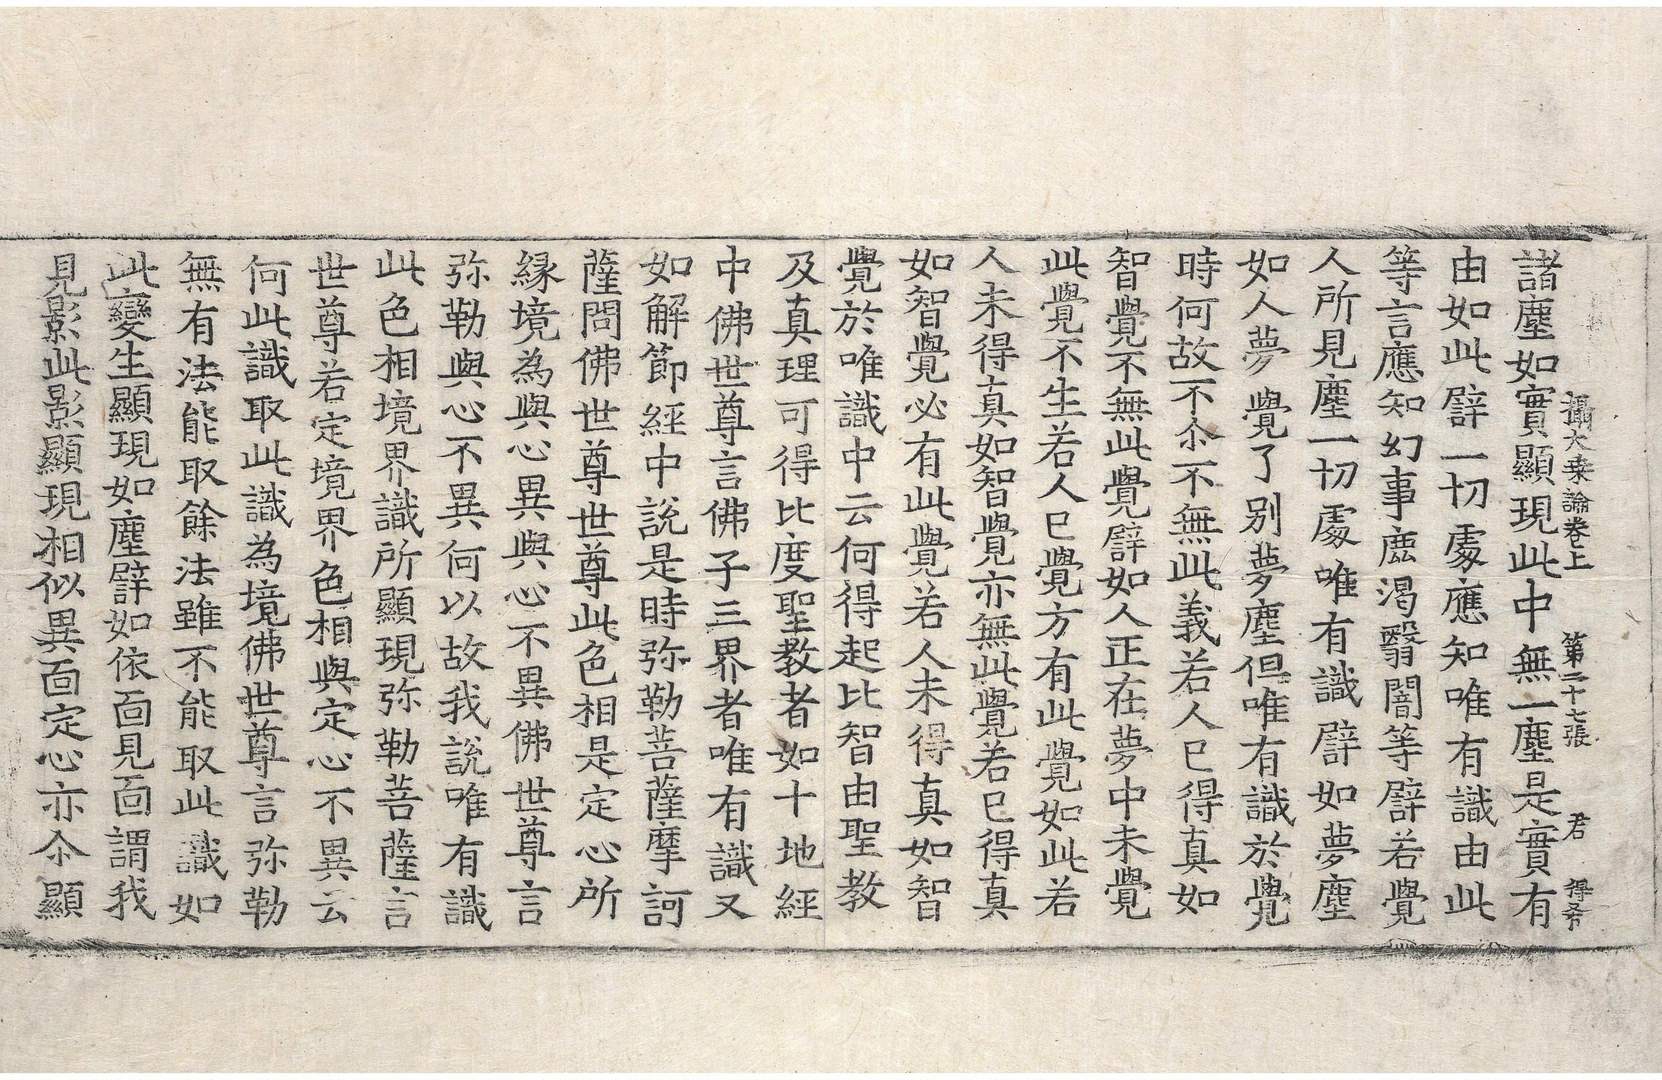 攝大乗論卷上　第二十七張　君　得希
諸塵如實顯現此中無一塵是實有
由如此譬一切處應知唯有識由此
等言應知幻事鹿渴翳闇等譬若覺
人所見塵一切處唯有識譬如夢塵
如人夢覺了別夢塵但唯有識於覺
時何故不尒不無此義若人已得真如
智覺不無此覺譬如人正在夢中未覺
此覺不生若人已覺方有此覺如此若
人未得真如智覺亦無此覺若已得真
如智覺必有此覺若人未得真如智
覺於唯識中云何得起比智由聖教
及真理可得比度聖教者如十地經
中佛世尊言佛子三界者唯有識又
如解節經中說是時弥勒菩薩摩訶
薩問佛世尊世尊此色相是定心所
緣境為與心異與心不異佛世尊言
弥勒與心不異何以故我說唯有識
此色相境界識所顯現弥勒菩薩言
世尊若定境界色相與定心不異云
何此識取此識為境佛世尊言弥勒
無有法能取餘法雖不能取此識如
此變生顯現如塵譬如依面見面謂我
見影此影顯現相似異面定心亦尒顯